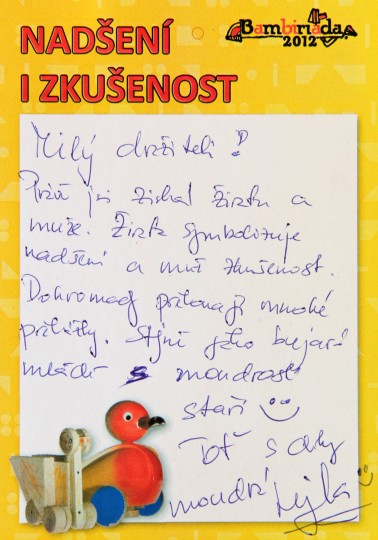 Bambiriáda
2012
NADŠENÍ
I ZKUŠENOST
Milý držiteli!
Právě jsi získal žirafu a
muže. Žirafa symbolizuje
nadšení a muž zkušenost.
Dohromady překonají mnohé
překážky. Stejně jako bujaré
mládí s moudrostí
stáří
Toť s díky
moudrá